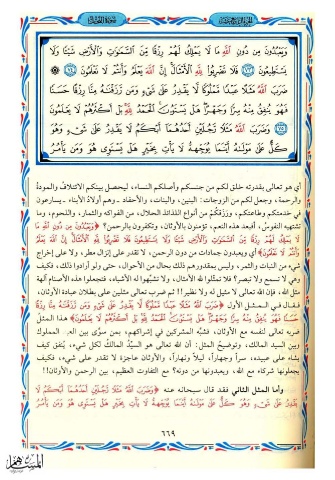 وَيَعْبُدُونَ مِن دُونِ اللَّهِ مَا لَا يَمْلِكُ لَهُمْ رِزْقًا مِّنَ السَّمَاوَاتِ وَالْأَرْضِ شَيْئًا وَلَا
يَسْتَطِيعُونَ ﴿٧٣﴾ فَلَا تَضْرِبُوا لِلَّهِ الْأَمْثَالَ إِنَّ اللَّهَ يَعْلَمُ وَأَنتُمْ لَا تَعْلَمُونَ ﴿٧٤﴾
ضَرَبَ اللَّهُ مَثَلًا عَبْدًا مَّمْلُوكًا لَّا يَقْدِرُ عَلَى شَيْءٍ وَمَن رَّزَقْنَاهُ مِنَّا رِزْقًا حَسَنًا
فَهُوَ يُنفِقُ مِنْهُ سِرًّا وَجَهْرًا هَلْ يَسْتَوُونَ الْحَمْدُ لِلَّهِ بَلْ أَكْثَرُهُمْ لَا يَعْلَمُونَ
﴿٧٥﴾ وَضَرَبَ اللَّهُ مَثَلًا رَّجُلَيْنِ أَحَدُهُمَا أَبْكَمُ لَا يَقْدِرُ عَلَى شَيْءٍ وَهُوَ
كَلٌّ عَلَى مَوْلَاهُ أَيْنَمَا يُوَجِّههُّ لَا يَأْتِ بِخَيْرٍ هَلْ يَسْتَوِي هُوَ وَمَن يَأْمُرُ
أي هو تعالى بقدرته خلق لكم من جنسكم وأصلكم النساء، ليحصل بينكم الائتلاف والمودة
والرحمة، وجعل لكم من الزوجات: البنين، والبنات، والأحفاد ـ وهم أولاد الأبناء ـ يسارعون
في خدمتكم وطاعتكم، ورزقكم من أنواع اللذائذ الحلال، من الفواكه والثمار، واللحوم، وما
تشتهيه النفوس، أفبعد هذه النعم، تؤمنون بالأوثان، وتكفرون بالرحمن؟ ﴿وَيَعْبُدُونَ مِن دُونِ اللَّهِ مَا
لَا يَمْلِكُ لَهُمْ رِزْقًا مِّنَ السَّمَاوَاتِ وَالْأَرْضِ شَيْئًا وَلَا يَسْتَطِيعُونَ فَلَا تَضْرِبُوا لِلَّهِ الْأَمْثَالَ إِنَّ اللَّهَ يَعْلَمُ
وَأَنتُمْ لَا تَعْلَمُونَ﴾ أي ويعبدون جمادات من دون الرحمن، لا تقدر على إنزال مطر، ولا على إخراج
شيء من النبات والثمر، وليس بمقدورهم ذلك بحال من الأحوال، حتى ولو أرادوا ذلك، فكيف
وهي لا تسمع ولا تبصر؟ فلا تمثلوا لله الأمثال، ولا تشبهوا له الأشباه، فتجعلوا هذه الأصنام آلهة
مع الله، فإن الله تعالى لا مثيل له ولا نظير!! ثم ضرب تعالى مثلين على بطلان عبادة الأوثان،
فقال في المثل الأول ﴿ضَرَبَ اللَّهُ مَثَلًا عَبْدًا مَّمْلُوكًا لَّا يَقْدِرُ عَلَى شَيْءٍ وَمَن رَّزَقْنَاهُ مِنَّا رِزْقًا
حَسَنًا فَهُوَ يُنفِقُ مِنْهُ سِرًّا وَجَهْرًا هَلْ يَسْتَوُونَ الْحَمْدُ لِلَّهِ بَلْ أَكْثَرُهُمْ لَا يَعْلَمُونَ﴾ هذا المثل
ضربه تعالى لنفسه مع الأوثان، فشبه المشركين في إشراكهم، بمن سوى بين العبد المملوك
وبين السيد المالك، وتوضيح المثل: أن الله تعالى هو السيد المالك لكل شيء، ينفق كيف
يشاء على عبيده، سراً وجهاراً، ليلاً ونهاراً، والأوثان عاجزة لا تقدر على شيء، فكيف
يجعلونها شركاء مع الله، ويعبدونها من دونه؟ مع التفاوت العظيم، بين الرحمن والأوثان!!
وأما المثل الثاني فقد قال سبحانه عنه ﴿وَضَرَبَ اللَّهُ مَثَلًا رَّجُلَيْنِ أَحَدُهُمَا أَبْكَمُ لَا
يَقْدِرُ عَلَى شَيْءٍ وَهُوَ كَلٌّ عَلَى مَوْلَاهُ أَيْنَمَا يُوَجِّههُّ لَا يَأْتِ بِخَيْرٍ هَلْ يَسْتَوِي هُوَ وَمَن يَأْمُرُ
٦٦٩